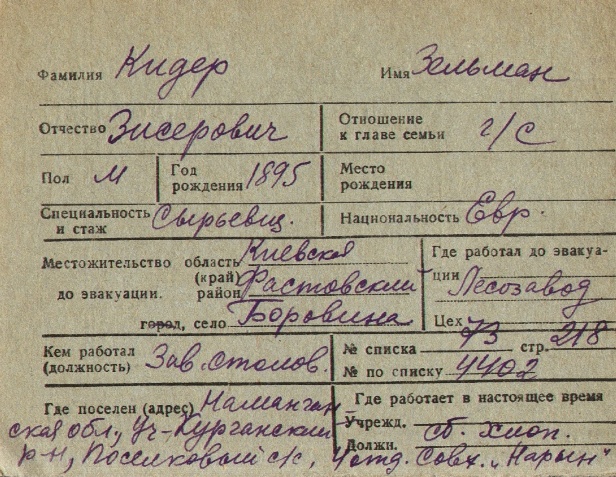 Фамилия Кидер Имя Зельман
Отчество Зисерович Отношение к главе семьи г/с
Пол М Год рождения 1895 Место рождения
Специальность и стаж Сырьевщ. Национальность Евр.
Местожительство до эвакуации. область (край) Киевская
район Фастовский
город, село Боровина
Где работал до эвакуации Лесозавод
Цех
Кем работал (должность) Зав. столов.
№ списка 73 стр. 218
№ по списку 4402
Где поселен (адрес) Наманган
ская обл., Уч-Курганский
р-н, Поселковый с/с,
Где работает в настоящее время
Учрежд. сб. хлоп.
Должн.
Совх. „Нарын"